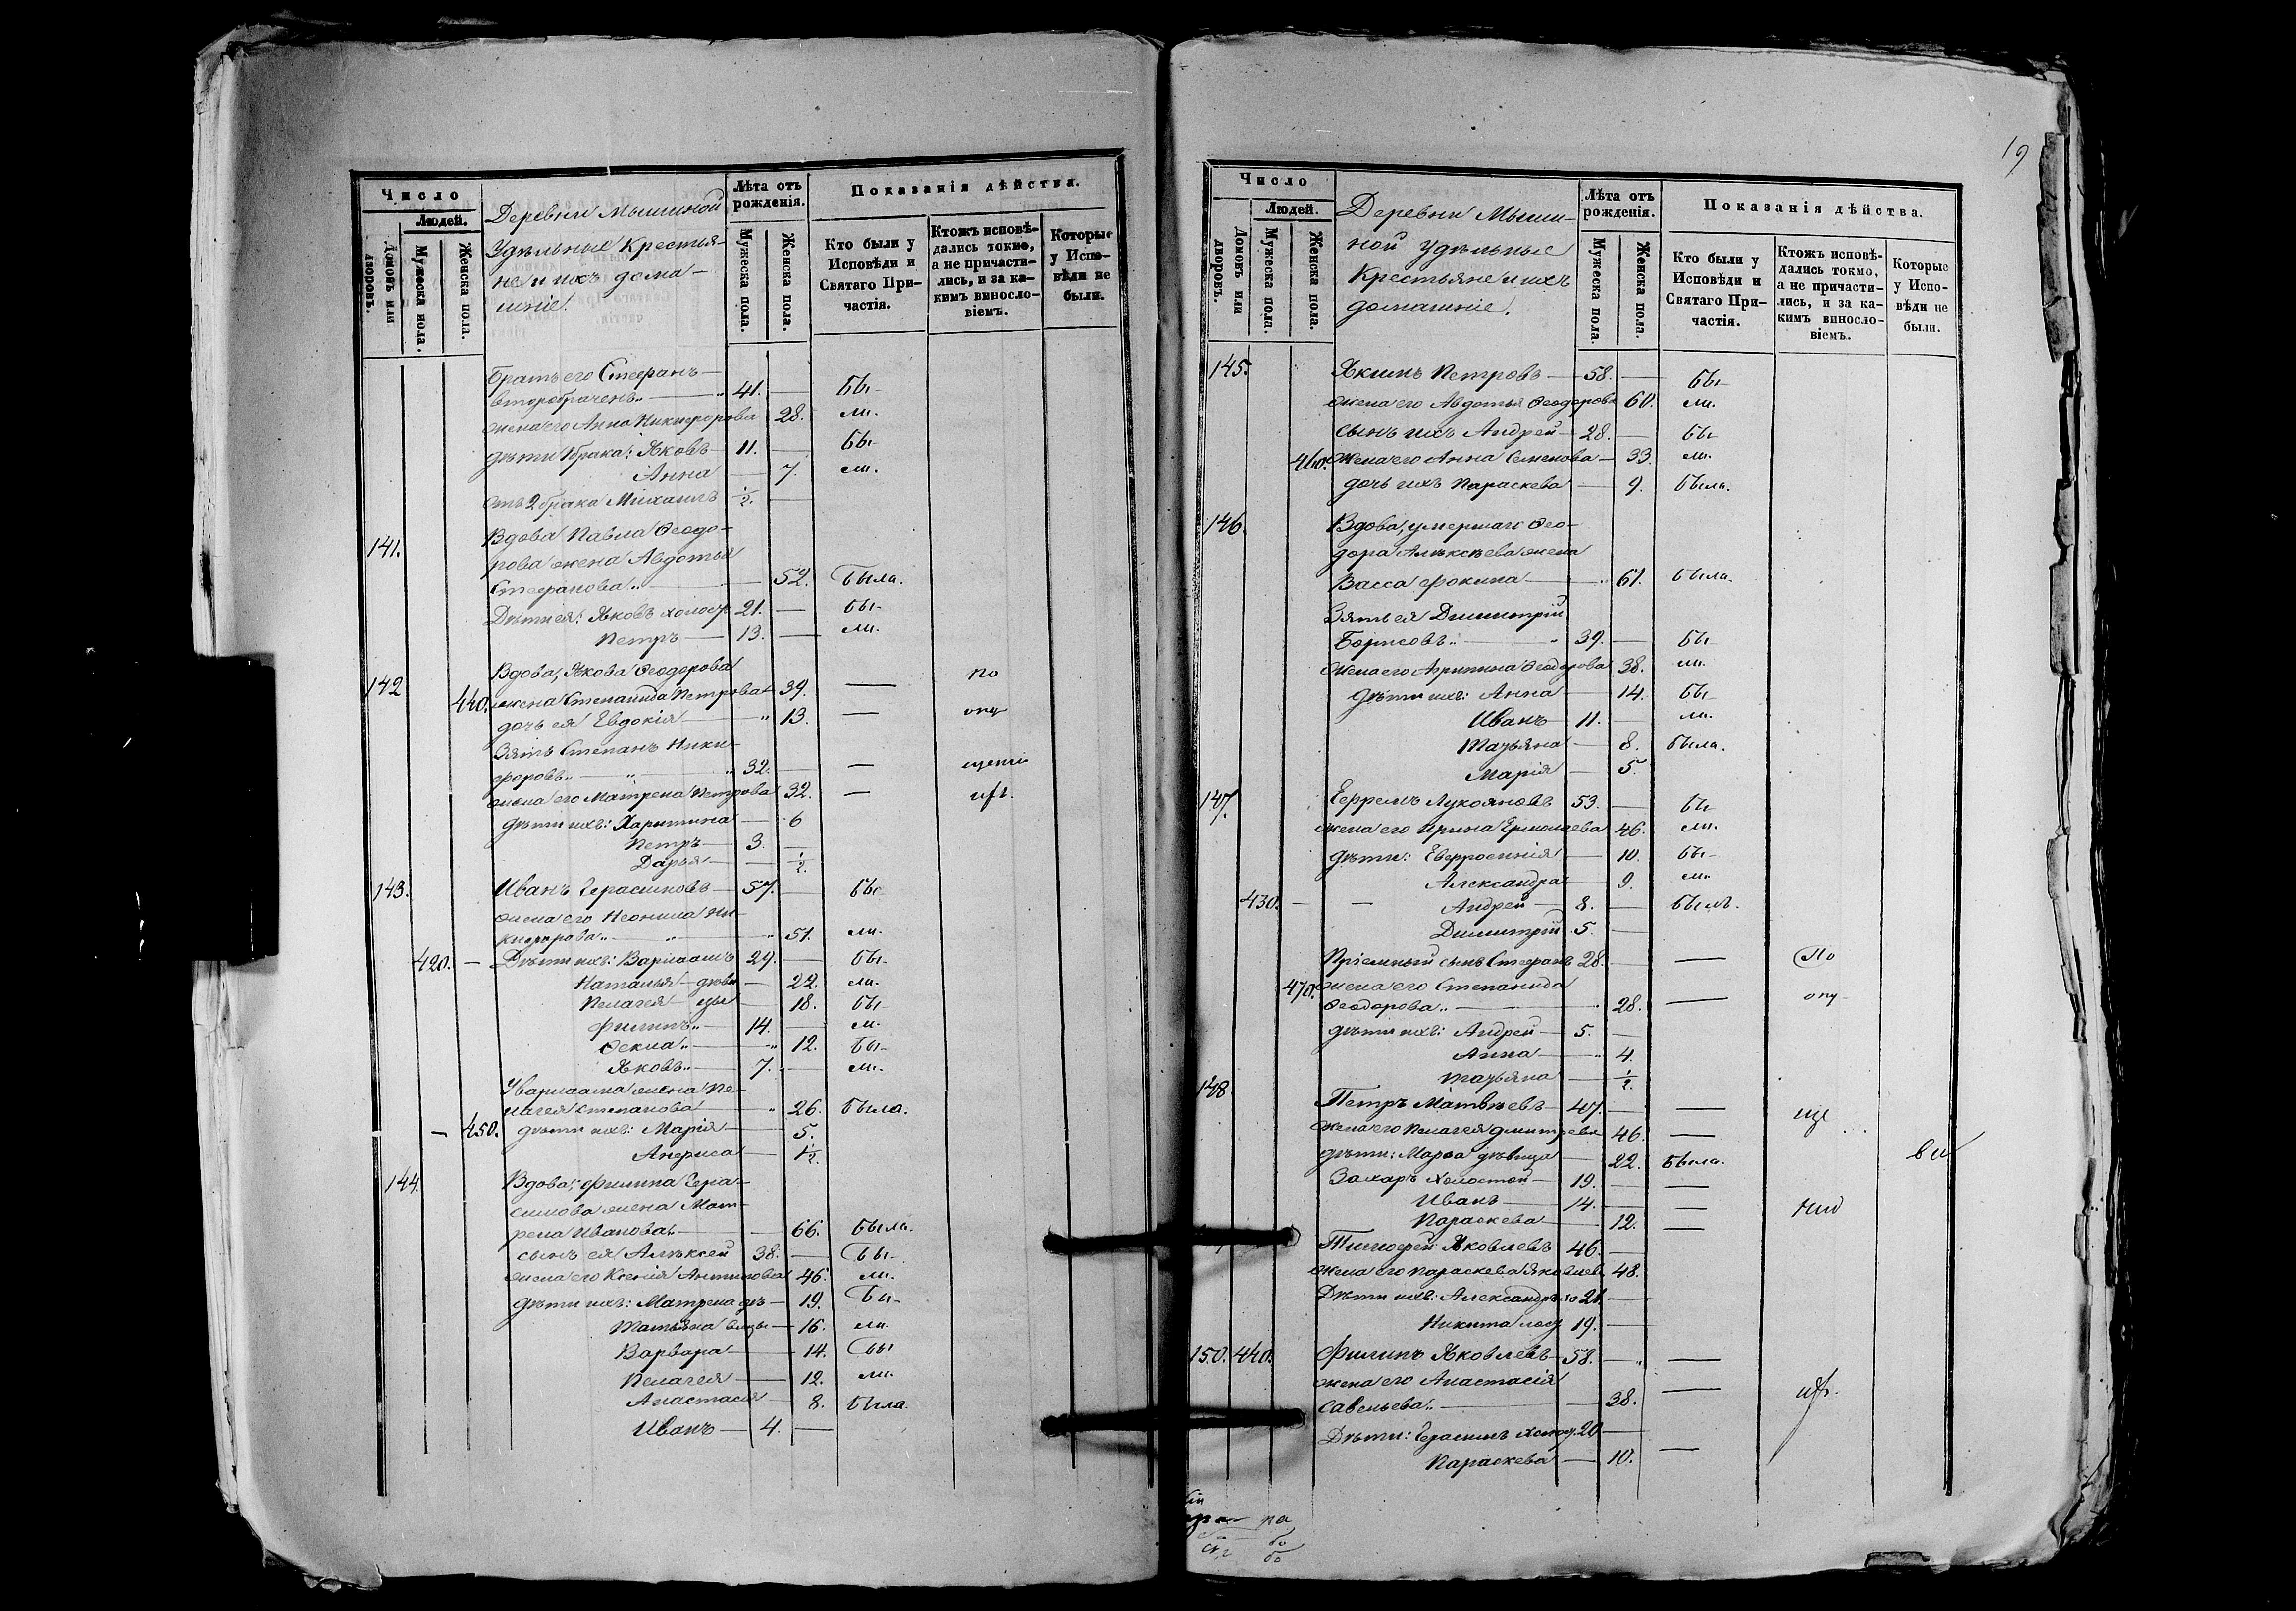 Число
Людей.
Домовъ или дворовъ.
Мужеска пола.
Женска пола.
Деревни Мышиной
Удѣльные Крестья-
не и ихъ дома-
шніе.
Лѣта отъ рожденія.
Мужеска пола.
Женска пола.
Показанія дѣйства.
Кто были у Исповѣди и Святаго Причастія.
Ктожъ исповѣдались токмо, а не причастились, и за какимъ винословіемъ.
Которые у Исповѣди не были.
Братъ его Стефанъ
второбраченъ 41. Бы-
жена его Анна Никифорова 28. ли.
дѣти 1 брака: Яковъ 11. бы-
Анна 7. ли.
отъ 2 брака Михаилъ ½.
141. Вдова Павла Ѳеодо-
рова жена Авдотья
Стефанова 52. Была.
Дѣти ея: Яковъ холос 21. бы-
Петръ 13. ли.
142 Вдова, Якова Ѳеодорова по
440. жена Степанида Петрова 39. —
дочь ея Евдокія 13. — опу
Зять Степанъ Ники-
форовъ 32. — щенію
жена его Матрена Петрова 32. —
дѣти ихъ: Харитина 6
Петръ 3.
Дарья ½
143. Иванъ Герасимовъ 57. бы
жена его Неонила Ни-
кифорова 51. ли.
420. Дѣти ихъ: Варлаамъ 29. бы-
Наталья дѣви 22. ли.
Пелагея цы 18. бы-
Филипъ 14. ли.
Ѳекла 12. бы-
Яковъ 7. ли.
У Варлаама жена Пе-
лагея Степанова 26. была.
450. дѣти ихъ: Марія 5.
Анфиса 1½.
144. Вдова, Филипа Гера-
симова жена Мат-
рена Иванова 66. была.
сынъ ея Алѣксей 38. бы-
жена его Ксенія Антипова 46. ли.
дѣти ихъ: Матрена дѣ- 19. бы-
Татьяна вицы 16. ли.
Варвара 14. бы
Пелагея 12. ли.
Анастасія 8. была.
Иванъ 4.
19
Число
Людей.
Домовъ или дворовъ.
Мужеска пола.
Женска пола.
Деревни Мыши-
ной удѣльные
Крестьяне и ихъ
домашніе.
Лѣта отъ рожденія.
Мужеска пола.
Женска пола.
Показанія дѣйства.
Кто были у Исповѣди и Святаго Причастія.
Ктожъ исповѣдались токмо, а не причастились, и за какимъ винословіемъ.
Которые у Исповѣди не были.
145. Якимъ Петровъ 58. бы-
жена его Авдотья Ѳеодорова 60. ли.
сынъ ихъ Андрей 28. бы
460. жена его Анна Семенова 33. ли.
дочь ихъ Параскева 9. была.
146. Вдова, умершаго Ѳео-
дора Алѣксѣева жена
Васса Фокина 61. была.
Зять ея Димитрій
Борисовъ 39. бы
жена его Агрипина Ѳеодорова 38. ли.
дѣти ихъ: Анна 14. бы-
Иванъ 11. ли.
Татьяна 8. была.
Марія 5.
147. Ефремъ Лукояновъ 53. бы
жена его Ирина Ермолаева 46. ли.
дѣти: Евфросинія 10. бы-
Александра 9. ли.
430. Андрей 8. былъ.
Димитрій 5.
Пріемный сынъ Стефанъ 28. — По
470. жена его Степанида
Ѳеодорова 28. — опу-
дѣти ихъ: Андрей 5.
Анна 4.
Татьяна ½.
148 Петръ Матвѣевъ 47. — ще
жена его Пелагея Дмитрева 46. —
дѣти: Марѳа дѣвица 22. была.
Захаръ Холостой 19. —
Иванъ 14. — нію
Параскева 12. —
Тимофей Яковлевъ 46.
жена его Параскева Яковлева 48.
Дѣти ихъ: Александръ хо 21.
Никита лост 19.
150. 440. Филипъ Яковлевъ 58. —
жена его Анастасія
Савельева 38. —
Дѣти: Герасимъ Холост. 20
Параскева 10. —